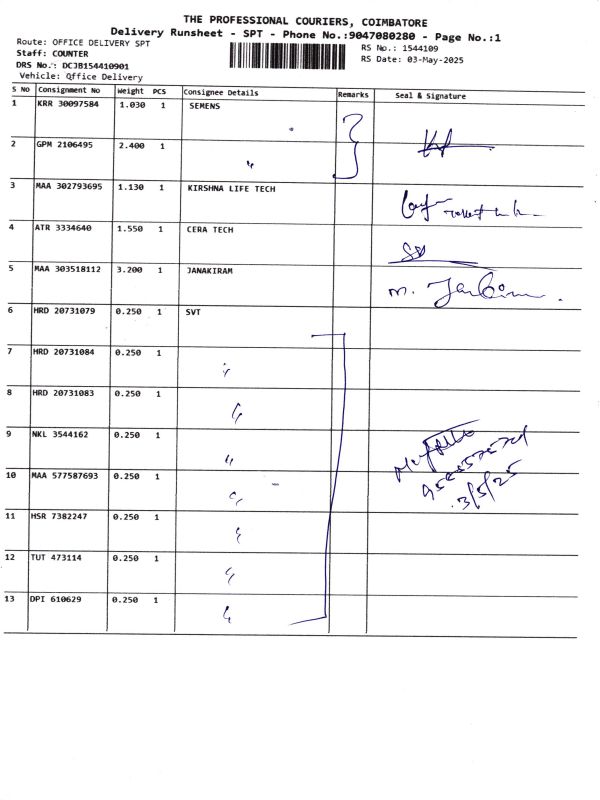 THE PROFESSIONAL COURIERS, COIMBATORE
Delivery Runsheet - SPT - Phone No.:9047080280 - Page No.:1
Route: OFFICE DELIVERY SPT
Staff: COUNTER
DRS No.: DCJB154410901
Vehicle: Office Delivery
RS No.: 1544109
RS Date: 03-May-2025
S No Consignment No Weight PCS Consignee Details Remarks Seal & Signature
1 KRR 30097584 1.030 1 SEMENS
2 GPM 2106495 2.400 1 "
3 MAA 302793695 1.130 1 KIRSHNA LIFE TECH
4 ATR 3334640 1.550 1 CERA TECH
5 MAA 303518112 3.200 1 JANAKIRAM
6 HRD 20731079 0.250 1 SVT
7 HRD 20731084 0.250 1 "
8 HRD 20731083 0.250 1 "
9 NKL 3544162 0.250 1 "
10 MAA 577587693 0.250 1 "
11 HSR 7382247 0.250 1 "
12 TUT 473114 0.250 1 "
13 DPI 610629 0.250 1 "
3/5/25